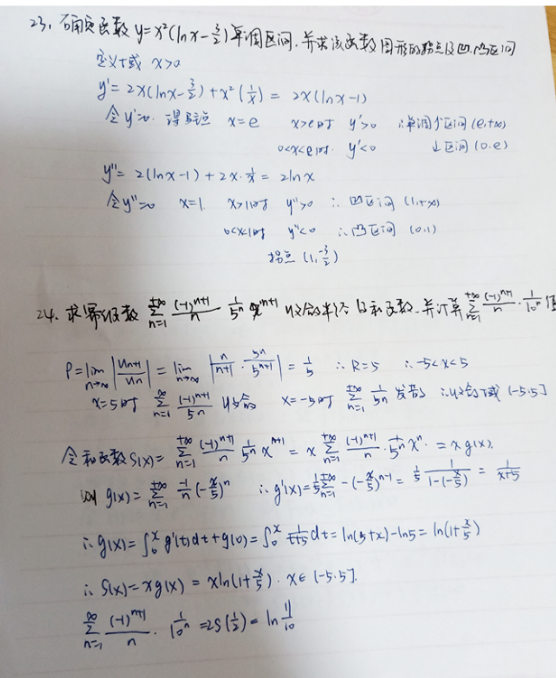 23. 确定函数 y=x²(lnx-3/2) 单调区间,并求该函数图形的拐点及凹、凸区间
定义域 x>0
y'=2x(lnx-3/2)+x²(1/x)=2x(lnx-1)
令y'=0 得驻点 x=e x>e时 y'>0 ∴单调↑区间(e,+∞)
0<x<e时 y'<0 ↓区间(0,e)
y''=2(lnx-1)+2x·1/x=2lnx
令y''=0 x=1 x>1时 y''>0 ∴凹区间(1,+∞)
0<x<1时 y''<0 ∴凸区间(0,1)
拐点(1,-3/2)
24. 求幂级数 ∑_{n=1}^{+∞} (-1)^{n+1}/n · 1/5ⁿ x^{n+1} 收敛半径及和函数,并计算 ∑_{n=1}^{+∞} (-1)^{n+1}/n · 1/10ⁿ 值
ρ=lim_{n→∞}|u_{n+1}/u_n|=lim_{n→∞}|n/(n+1) · 5ⁿ/5^{n+1}|=1/5 ∴R=5 ∴-5<x<5
x=5时 ∑_{n=1}^{+∞} (-1)^{n+1}/5n 收敛 x=-5时 ∑_{n=1}^{+∞} 1/5n 发散 ∴收敛域(-5,5]
令和函数S(x)=∑_{n=1}^{+∞} (-1)^{n+1}/n · 1/5ⁿ x^{n+1}=x∑_{n=1}^{+∞} (-1)^{n+1}/n · 1/5ⁿ xⁿ=xg(x).
则 g(x)=∑_{n=1}^{+∞} -1/n(-x/5)ⁿ ∴g'(x)=1/5∑_{n=1}^{+∞}-(-x/5)ⁿ=1/5 · 1/(1-(-x/5))=1/(x+5)
∴g(x)=∫₀ˣg'(t)dt+g(0)=∫₀ˣ1/(t+5)dt=ln(5+x)-ln5=ln(1+x/5)
∴S(x)=xg(x)=xln(1+x/5). x∈(-5,5].
∑_{n=1}^{∞} (-1)^{n+1}/n · 1/10ⁿ=2S(1/2)=ln11/10